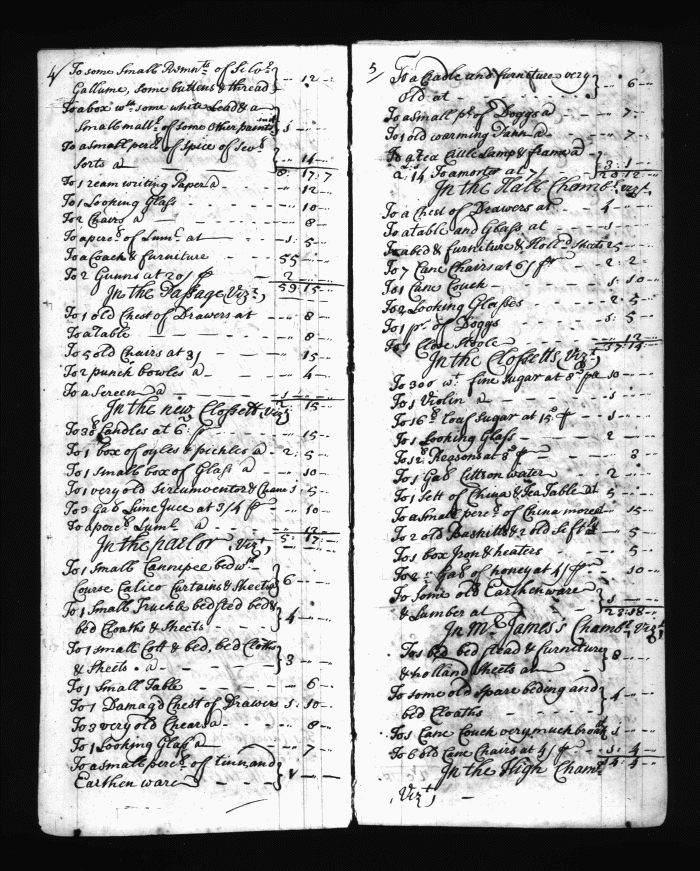 4/
To some Small Remnts of Selvr
Gallume, some buttens & thread } ,, 12
To a box wth some white Lead & a
Small matt of some other paints } 1
To a small percl of Spice of Sevl
Sorts a } 14
8: 17: 7
To 1 ream writing Paper a 12
To 1 Looking Glass 10
To 2 Chairs a 8
To a percl of Lumr at 1: 5
To a Coach & furniture 55
To 2 Gunns at 20/ P 2
59: 15
In the Passage Vizt,
To 1 old Chest of Drawers at 8
To a table 8
To 5 old Chairs at 3/ 15
To 2 punch bowles a 4
To a Screen a 1
2 15
In the new Clossett Vizt
To 30 Candles at 6: P 15
To 1 box of oyles & pickles a 2: 5
To 1 small box of Glass a 10
To 1 very old Sircumventor & Chane 1: 5
To 3 Gall Lime Juce at 3/4 P 10
To a percl Lumr a 12
5: 17:
In the parlor, Vizt,
To 1 Small Cannepee bed wth
Course Calico Curtains & Sheets a } 6
To 1 Small Truckle bedsted bed &
bed Cloaths & Sheets } 4
To 1 small Cott & bed, bed Cloths
& Sheets a } 3
To 1 Small Table 6
To 1 Damagd Chest of Drawers 1: 10
To 3 very old Chears a 8
To 1 Looking Glass a 7
To a small percl of tinn, and
Earthen ware } 1
5
To a Cradle and furniture very
old at } 6
To a small pr of Doggs a 7
To 1 old warming Pann a 7
To a tea Cittle Lamp & frame a } 3: 1
20: 12
In the Hall Chambr Vizt
To a Chest of Drawers at 4
To a table and Glass at 1
To a bed & furniture & Holld Sheets 25
To 7 Cane Chairs at 6/ P 2: 2
To 1 Cane Couch 1: 10
To 2 Looking Glasses 2: 5
To 1 pr of Doggs 1: 5
To 1 Close Stoole 12
37: 14
In the Clossetts, Vizt
To 300 wt fine Sugar at 8d pa 10
To 1 Violin a 1
To 16 lb loaf Sugar at 15d P 1
To 1 Looking Glass 2
To 12 lb Reasons at 3d P 3
To 1 Gall Cittron water 2
To 1 Sett of China & Tea Table at 5
To a small percl of China more at 15
To 2 old Baskitts & 2 old Seft 5
To 1 box Iron & heaters 5
To 2½ Gall of honey at 4/ P 10
To some old Earthenware
& Lumber at } 1
23: 18
In Mr James's Chambr Vizt
To 1 bed bed stead & furniture
& holland Sheets a } 8
To some old Spare beding and
bed Cloaths } 4
To 1 Cane Couch very much broak at 1
To 6 old Cane Chairs at 4/ P 1: 4
14: 4
In the High Chambr
Vizt,